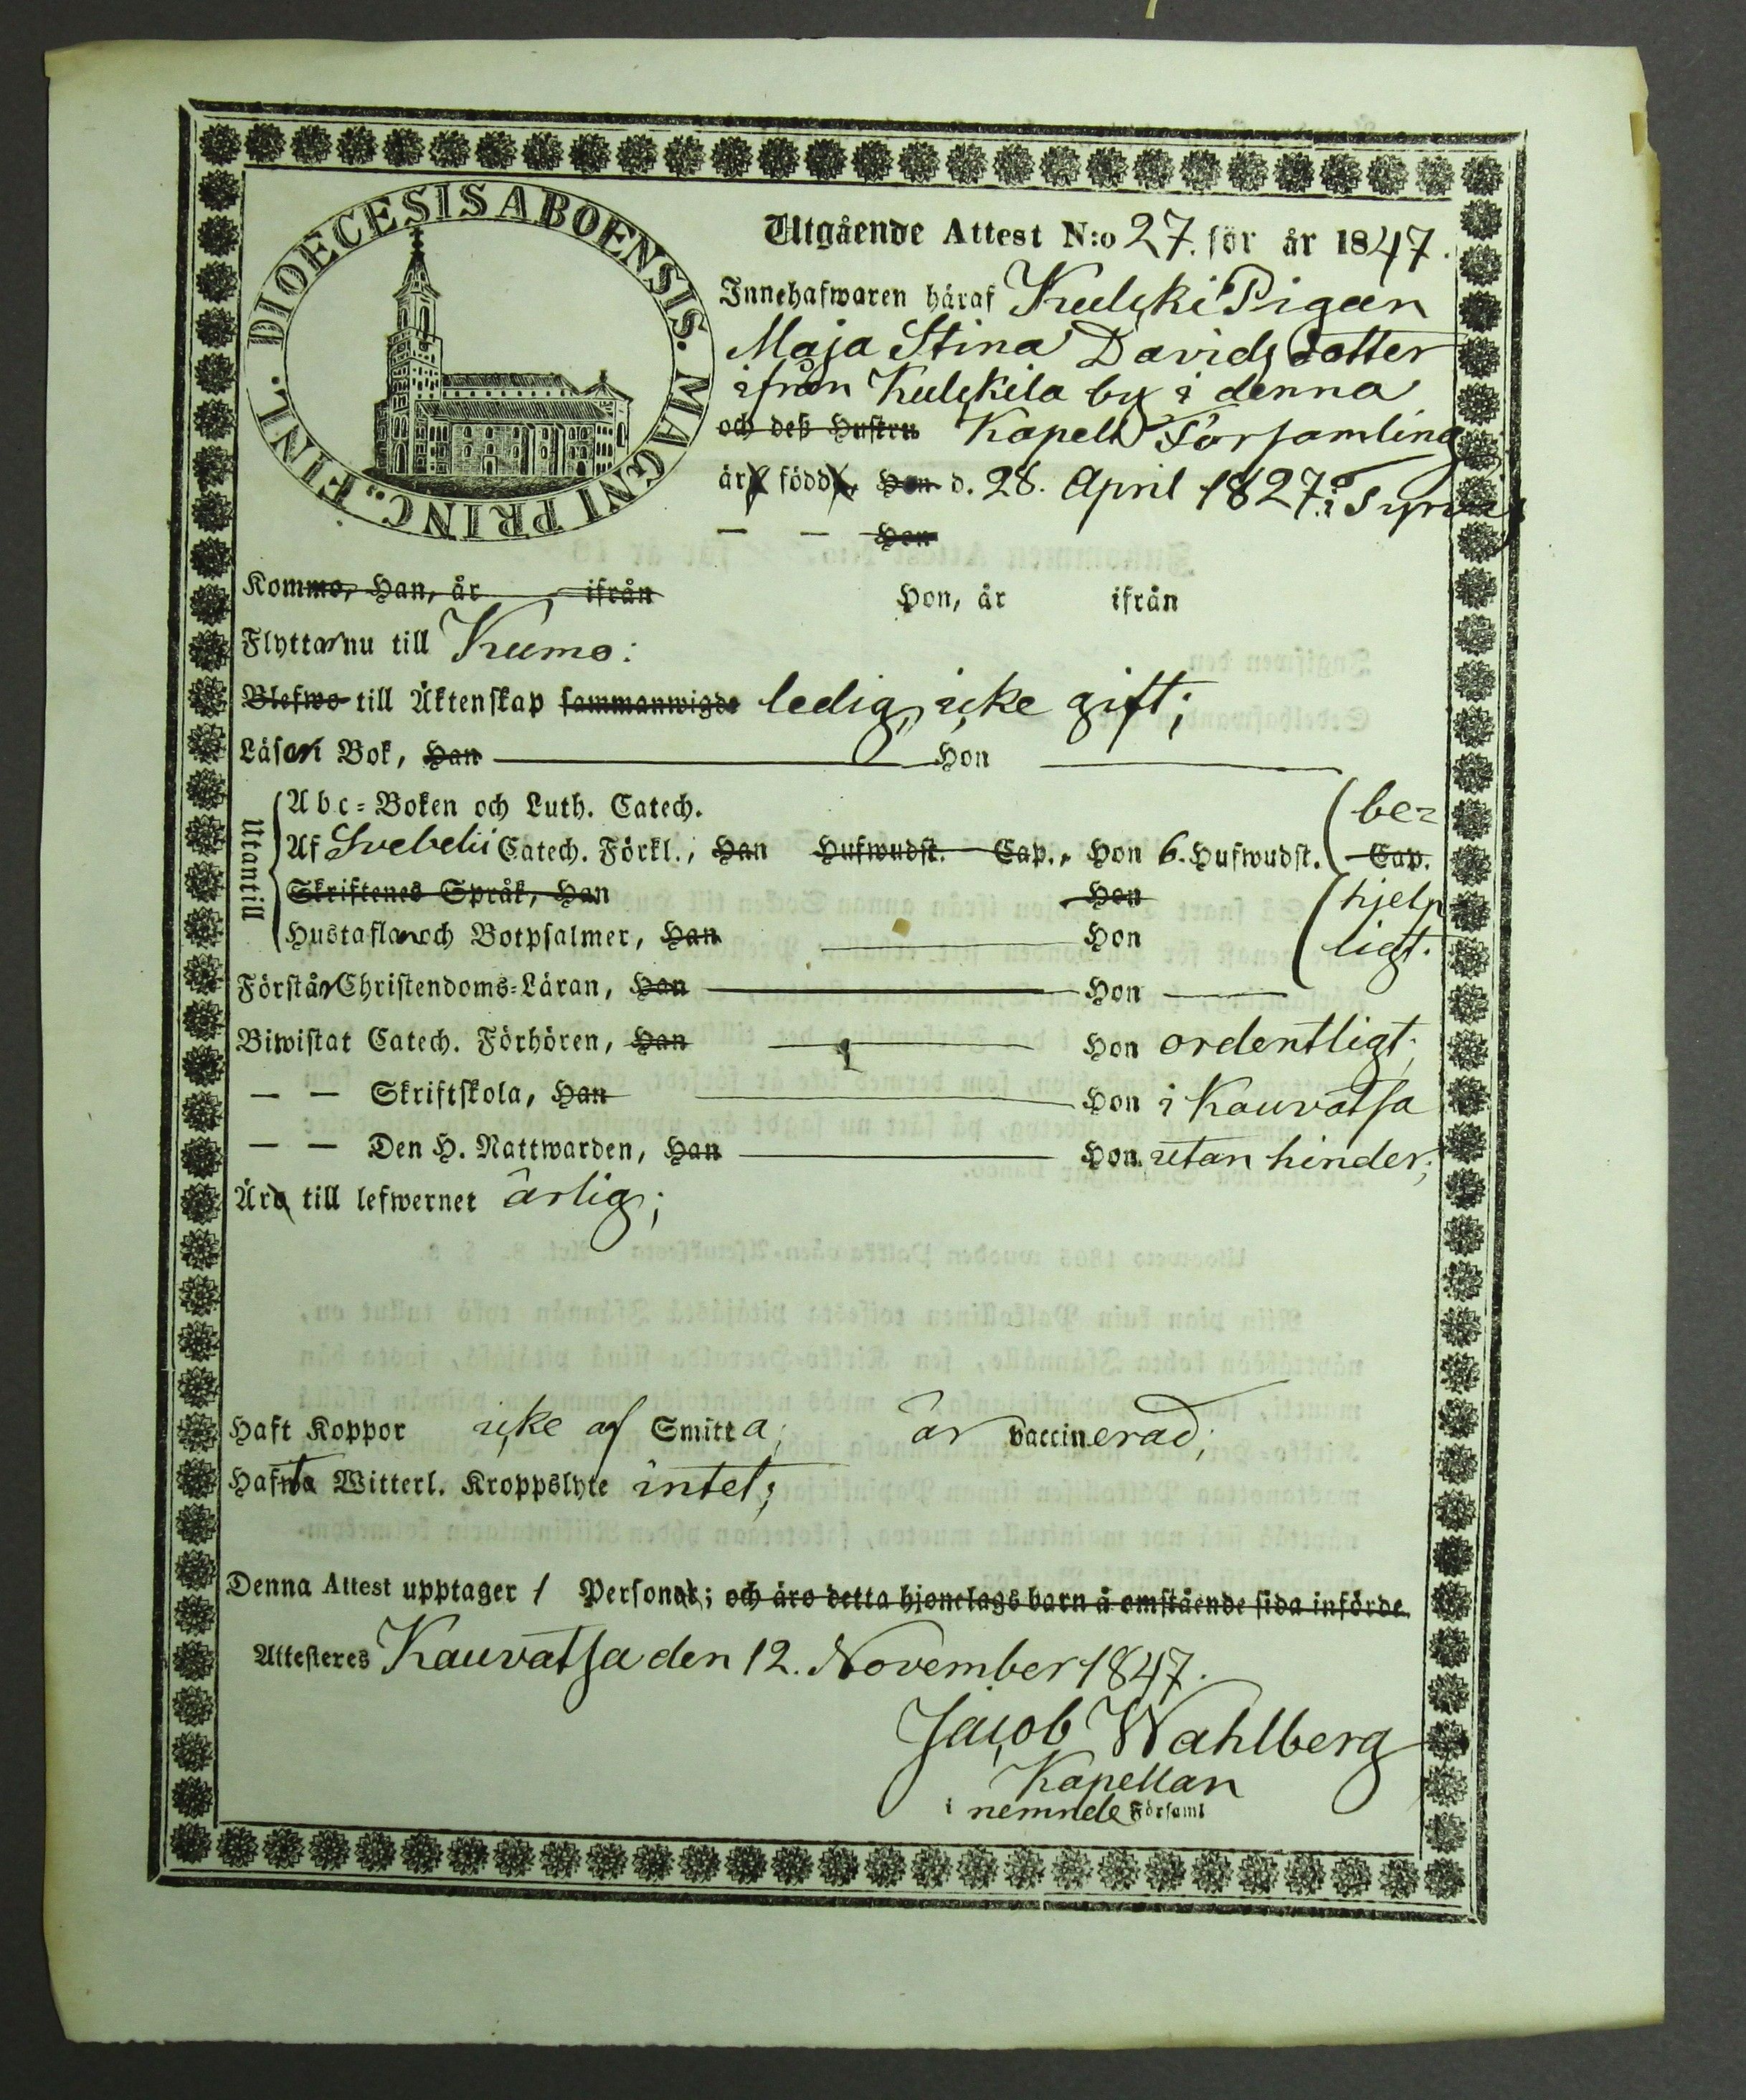 DIOECESIS ABOENSIS. MAGNI PRINC. FINL.
Utgående Attest N:o 27. för år 1847.
Innehafwaren häraf Kulcki Pigan
Maja Stina Davidsdotter
ifrån Kulckila by i denna
och deß Hustru Kapell Församling
är född, Hon d. 28. April 1827. i Tyrvis
— — Hon
Kommo, Han, år ifrån Hon, år ifrån
Flyttar nu till Kumo:
Blefwo till Äktenskap sammanwigde ledig, icke gift;
Läser i Bok, Han Hon
Utantill
Abc-Boken och Luth. Catech. be-
Af Svebelii Catech. Förkl., Han Hufwudst. Cap., Hon 6. Hufwudst. Cap.
Skriftenes Språk, Han Hon hjelp
Hustaflan och Botpsalmer, Han Hon ligt.
Förstår Christendoms-Läran, Han Hon
Biwistat Catech. Förhören, Han Hon ordentligt;
— — Skriftskola, Han Hon i Kauvatsa
— — Den H. Nattwarden, Han Hon utan hinder;
Är till lefwernet ärlig;
Haft Koppor icke af Smitta; är vaccinerad;
Haft Witterl. Kroppslyte intet;
Denna Attest upptager 1 Person; och äro detta hjonelags barn å omstående sida införde.
Attesteres Kauvatsa den 12. November 1847.
Jacob Wahlberg
Kapellan
i nemnde Församl